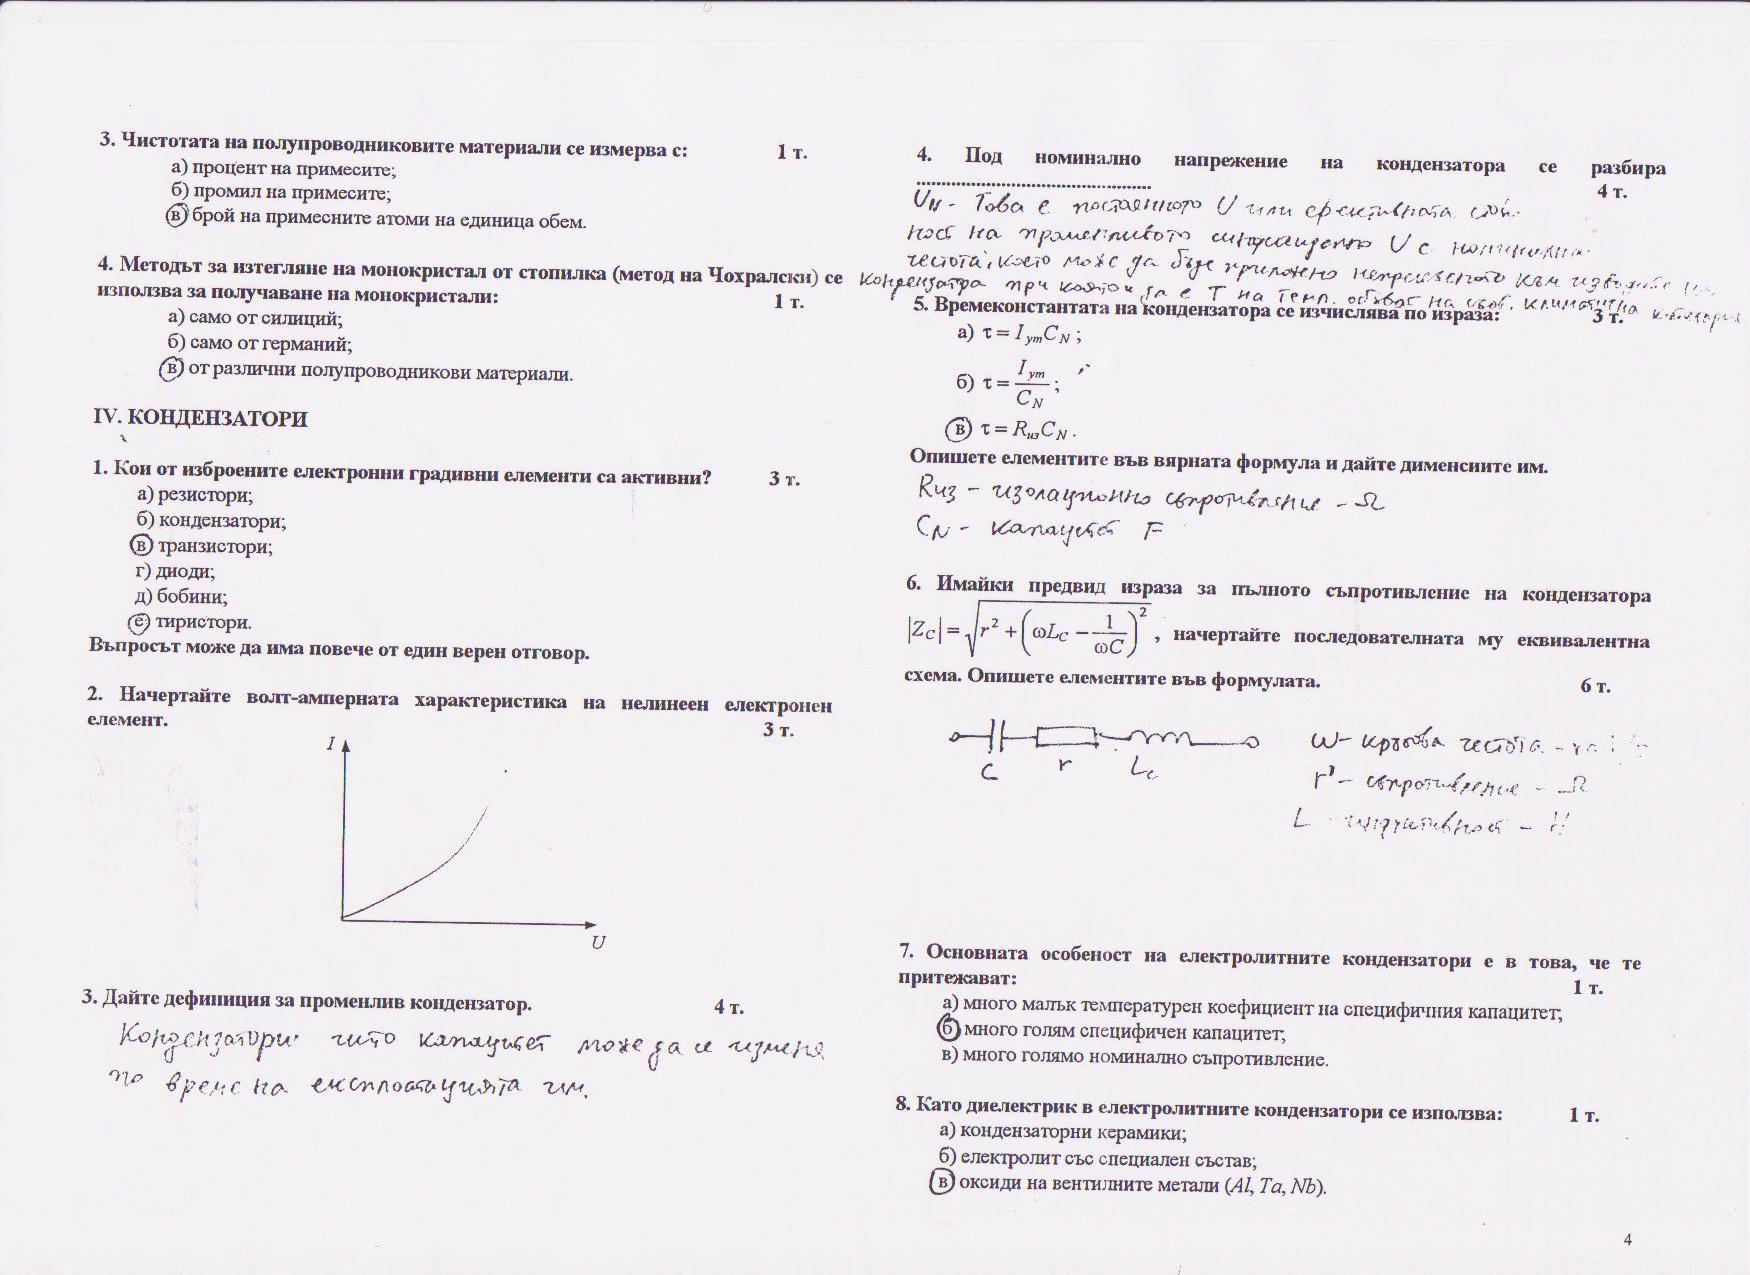 3. Чистотата на полупроводниковите материали се измерва с: 1 т.
а) процент на примесите;
б) промил на примесите;
в) брой на примесните атоми на единица обем.
4. Методът за изтегляне на монокристал от стопилка (метод на Чохралски) се
използва за получаване на монокристали: 1 т.
а) само от силиций;
б) само от германий;
в) от различни полупроводникови материали.
IV. КОНДЕНЗАТОРИ
1. Кои от изброените електронни градивни елементи са активни? 3 т.
а) резистори;
б) кондензатори;
в) транзистори;
г) диоди;
д) бобини;
е) тиристори.
Въпросът може да има повече от един верен отговор.
2. Начертайте волт-амперната характеристика на нелинеен електронен
елемент. 3 т.
I
U
3. Дайте дефиниция за променлив кондензатор. 4 т.
Кондензатори чийто капацитет може да се изменя
по време на експлоатацията им.
4. Под номинално напрежение на кондензатора се разбира
........................................... 4 т.
UN - Това е постоянното U или ефективната стой-
ност на променливото синусоидално U с номинална
честота, което може да бъде приложено непрекъснато към изводите
кондензатора при която и да е T на темп. обхват на клматична категория
5. Времеконстантата на кондензатора се изчислява по израза: 3 т.
а) τ = I ут C N ;
б) τ = I ут / C N ;
в) τ = R из C N .
Опишете елементите във вярната формула и дайте дименсиите им.
Rиз - изолационно съпротивление - Ω
CN - капацитет F
6. Имайки предвид израза за пълното съпротивление на кондензатора
|Z C| = √(r² + (ωL C − 1/ωC)²) , начертайте последователната му еквивалентна
схема. Опишете елементите във формулата. 6 т.
C r Lc
ω - кръгова честота -
r - съпротивление - Ω
L - индуктивност - H
7. Основната особеност на електролитните кондензатори е в това, че те
притежават: 1 т.
а) много малък температурен коефициент на специфичния капацитет;
б) много голям специфичен капацитет;
в) много голямо номинално съпротивление.
8. Като диелектрик в електролитните кондензатори се използва: 1 т.
а) кондензаторни керамики;
б) електролит със специален състав;
в) оксиди на вентилните метали (Al, Ta, Nb).
4